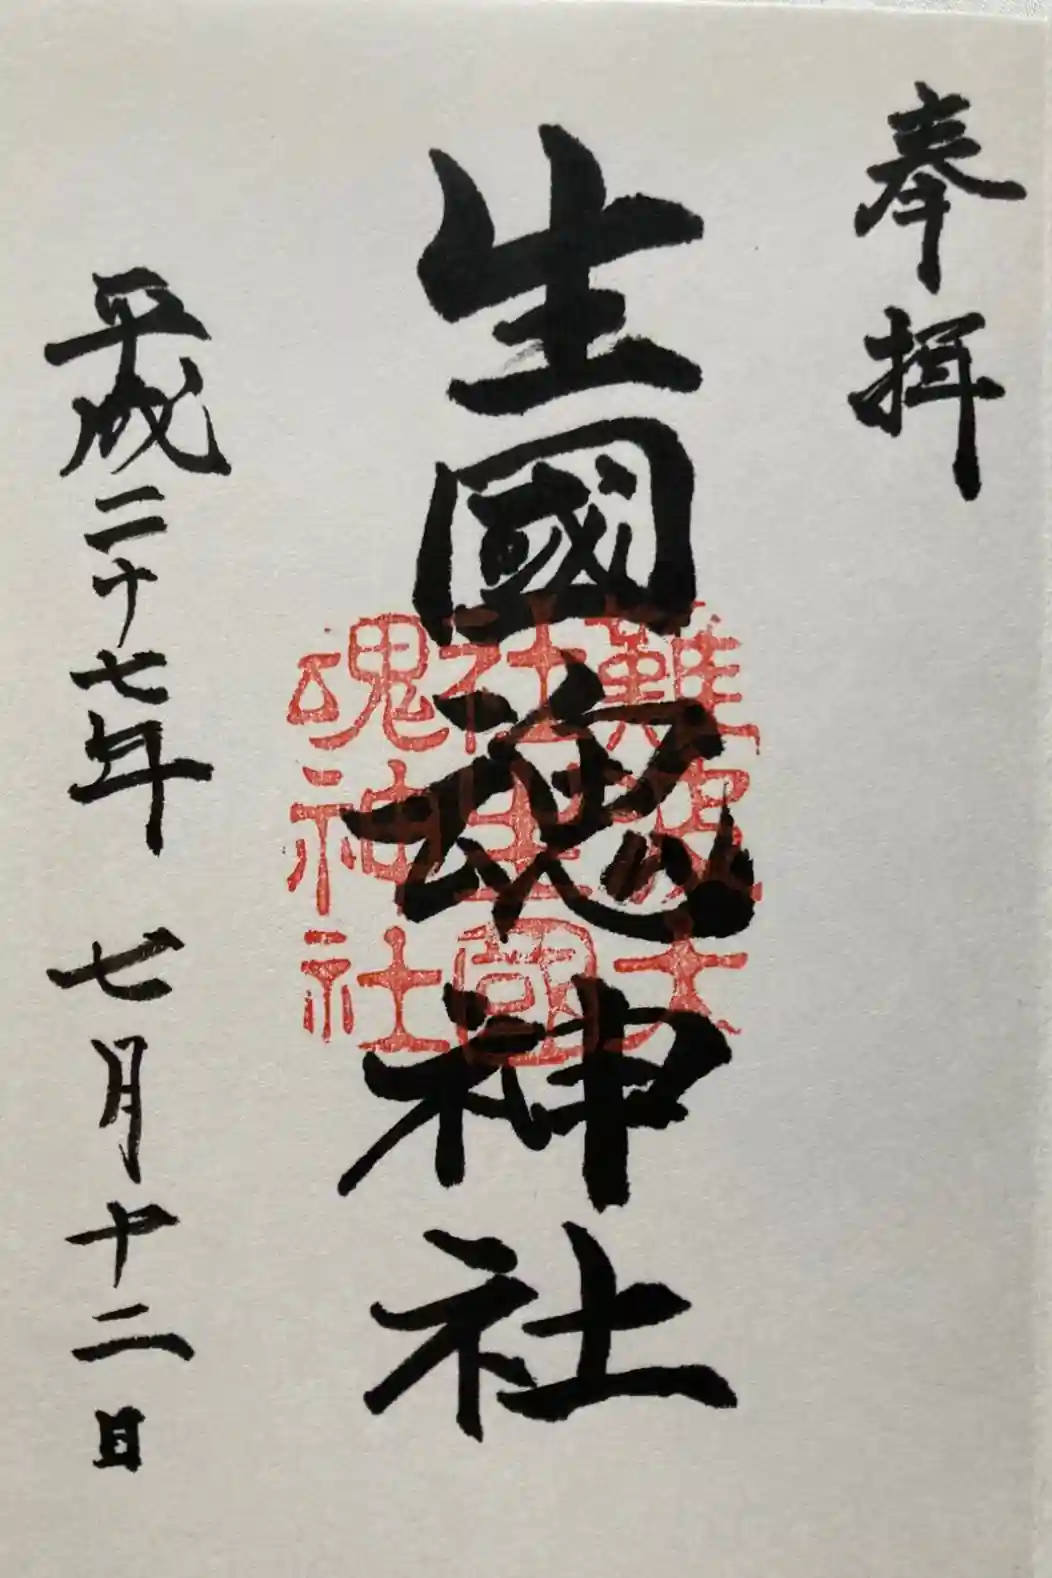 奉拝
生國魂神社
難波大
社生國
魂神社
平成二十七年 七月十二日